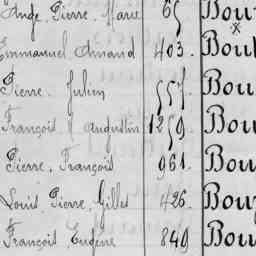 Ange, Pierre, Marie 65 Bou
Emmanuel, Amand 403. Bou
Pierre, Julien 557. Bou
François, Augustin 1259. Bou
Pierre, François 961. Bou
Louis, Pierre, Gilles 426. Bou
François, Eugène 849 Bou